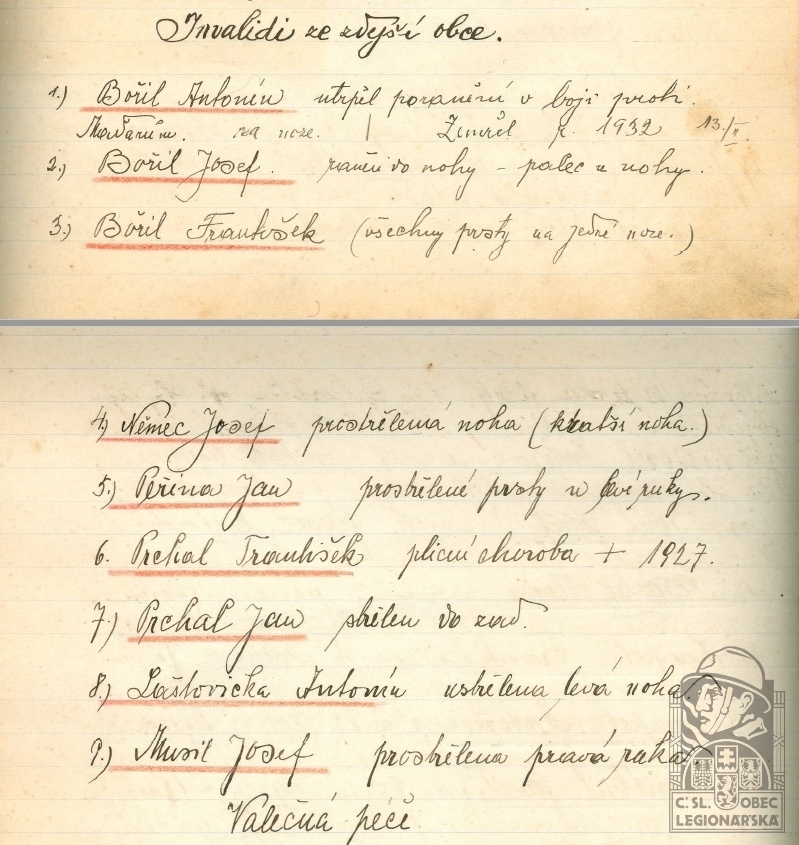 Invalidi ze zdejší obce.
1.) Bořil Antonín utrpěl poranění v boji proti
Maďarům. na noze. | Zemřel r. 1932 13./II.
2.) Bořil Josef. raněn do nohy - palec u nohy.
3.) Bořil František (všechny prsty na jedné noze.)
4.) Němec Josef prostřelená noha (kratší noha.)
5.) Peřina Jan prostřelené prsty u levé ruky.
6. Prchal František plicní choroba + 1927.
7.) Prchal Jan střelen do zad.
8.) Laštovička Antonín ustřelena levá noha.
9.) Musil Josef prostřelena pravá ruka.
Válečná péče.
Č.SL. OBEC
LEGIONÁŘSKÁ